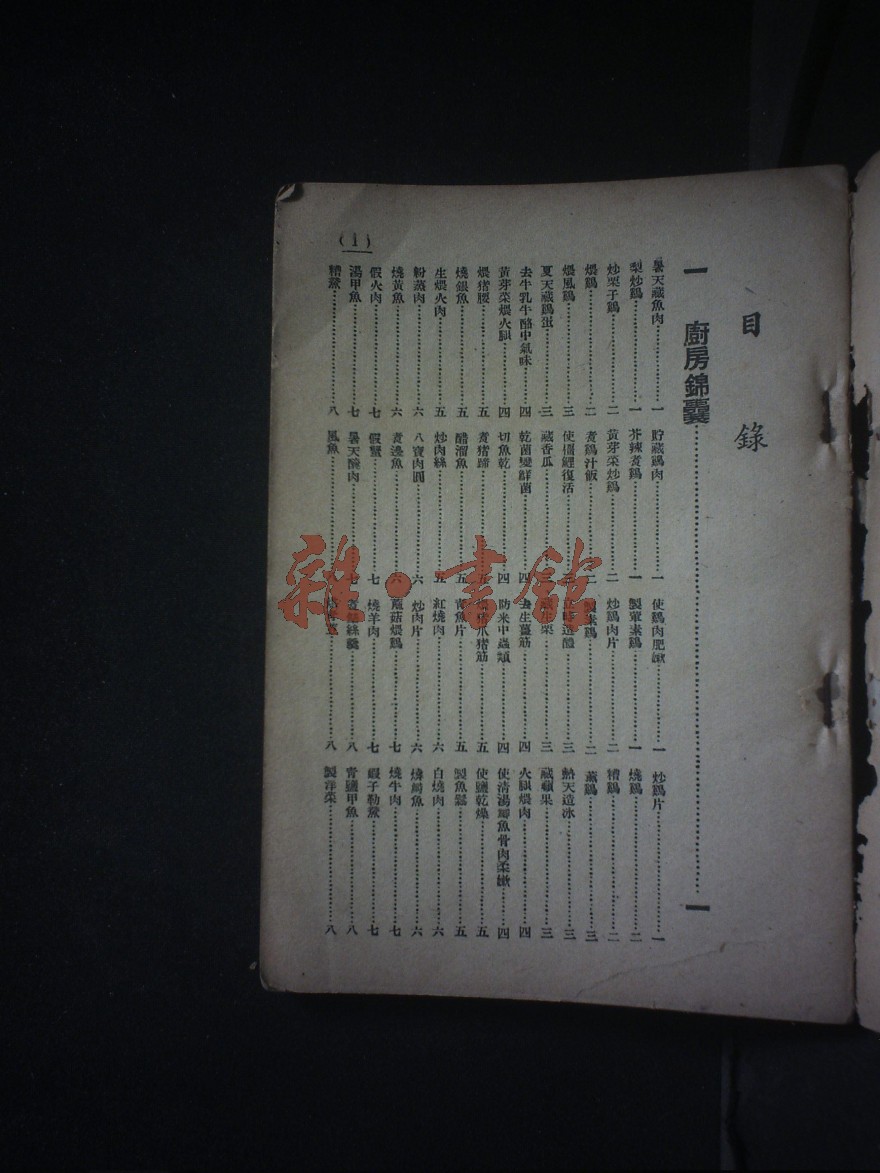 目錄
一 廚房錦囊……一
暑天藏魚肉……一 貯藏鷄肉……一 使鷄肉肥嫩……一 炒鷄片……一
梨炒鷄……一 芥辣煮鷄……一 製葷素鷄……一 燒鷄……二
炒栗子鷄……二 黃芽菜炒鷄……二 炒鷄肉片……二 糟鷄……二
煨鷄……二 煮鷄汁飯……二 製素鷄……二 薰鷄……三
煨風鷄……三 使殭鯉復活……三 造醋……三 熱天造冰……三
夏天藏鷄蛋……三 藏香瓜……三 藏生栗……三 藏蘋果……三
去牛乳牛酪中氣味……四 乾菌變鮮菌……四 去生薑筋……四 火腿煨肉……四
黃芽菜煨火腿……四 切魚乾……四 防米中蟲類……四 使清湯鯽魚骨肉柔嫩……四
煨猪腰……五 煮猪蹄……五 煨猪爪猪筋……五 使鹽乾燥……五
燒銀魚……五 醋溜魚……五 青魚片……五 製魚鬆……五
生煨火肉……五 炒肉絲……五 紅燒肉……六 白燒肉……六
粉蒸肉……六 八寶肉圓……六 炒肉片……六 魚……六
燒黃魚……六 煮邊魚……六 蘑菇煨鷄……七 燒牛肉……七
假火肉……七 假蟹……七 燒羊肉……七 蝦子勒鯗……七
湯甲魚……七 暑天醃肉……七 絲羹……八 青鹽甲魚……八
糟鯗……八 風魚……八 製洋菜……八
(1)
雜·書館